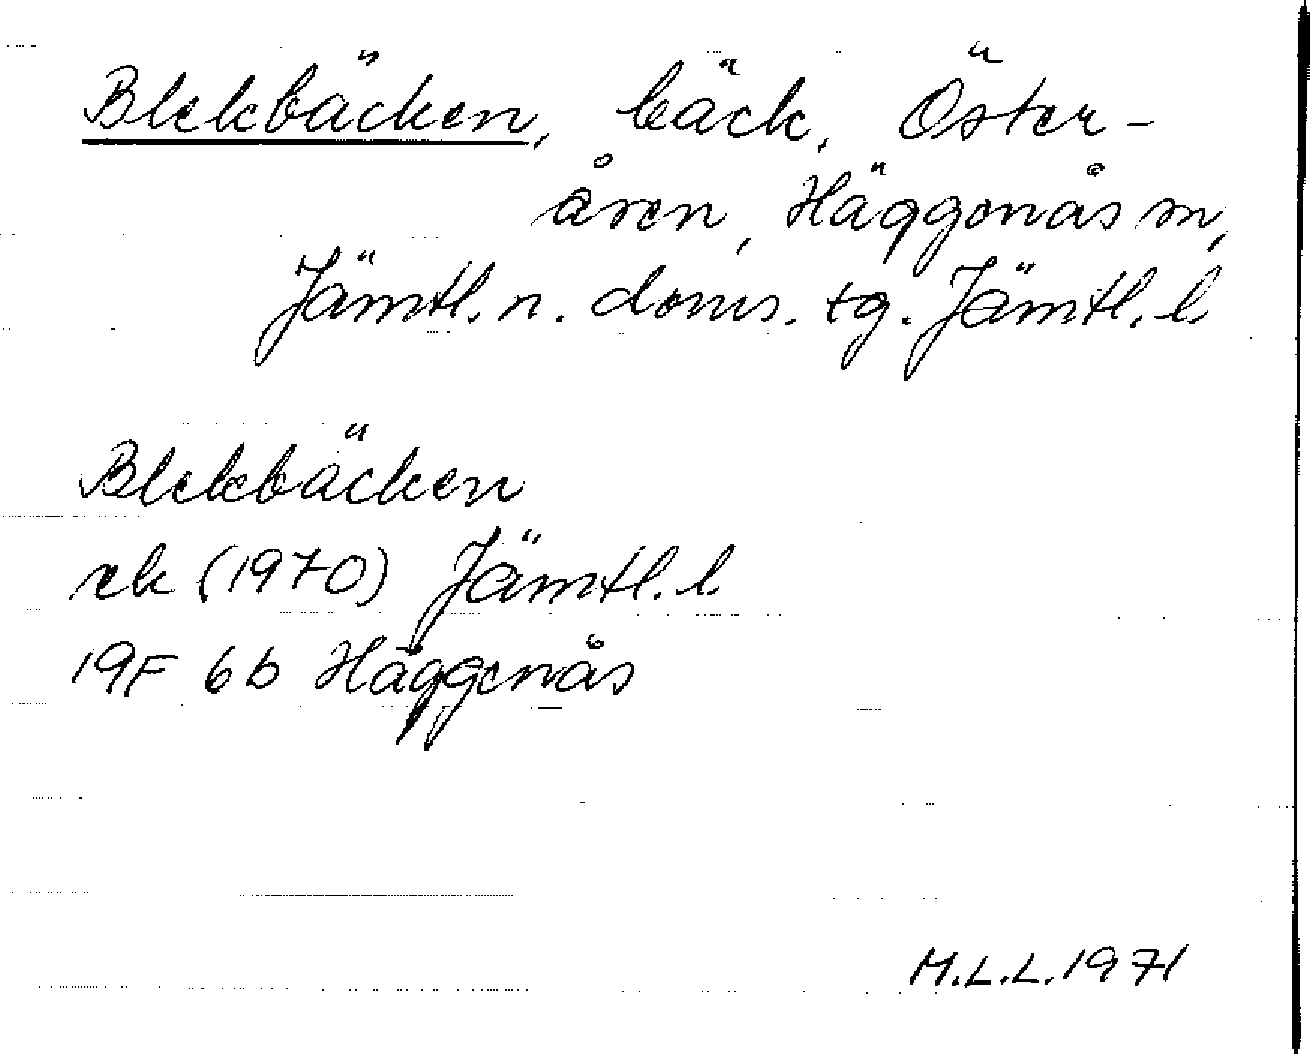 Blekbäcken, bäck, Öster-
åsen, Häggenås sn,
Jämtl. n. doms. tg. Jämtl. l.
Blekbäcken
ek (1970) Jämtl. l.
19F 6b Häggenås
M.L.L. 1971